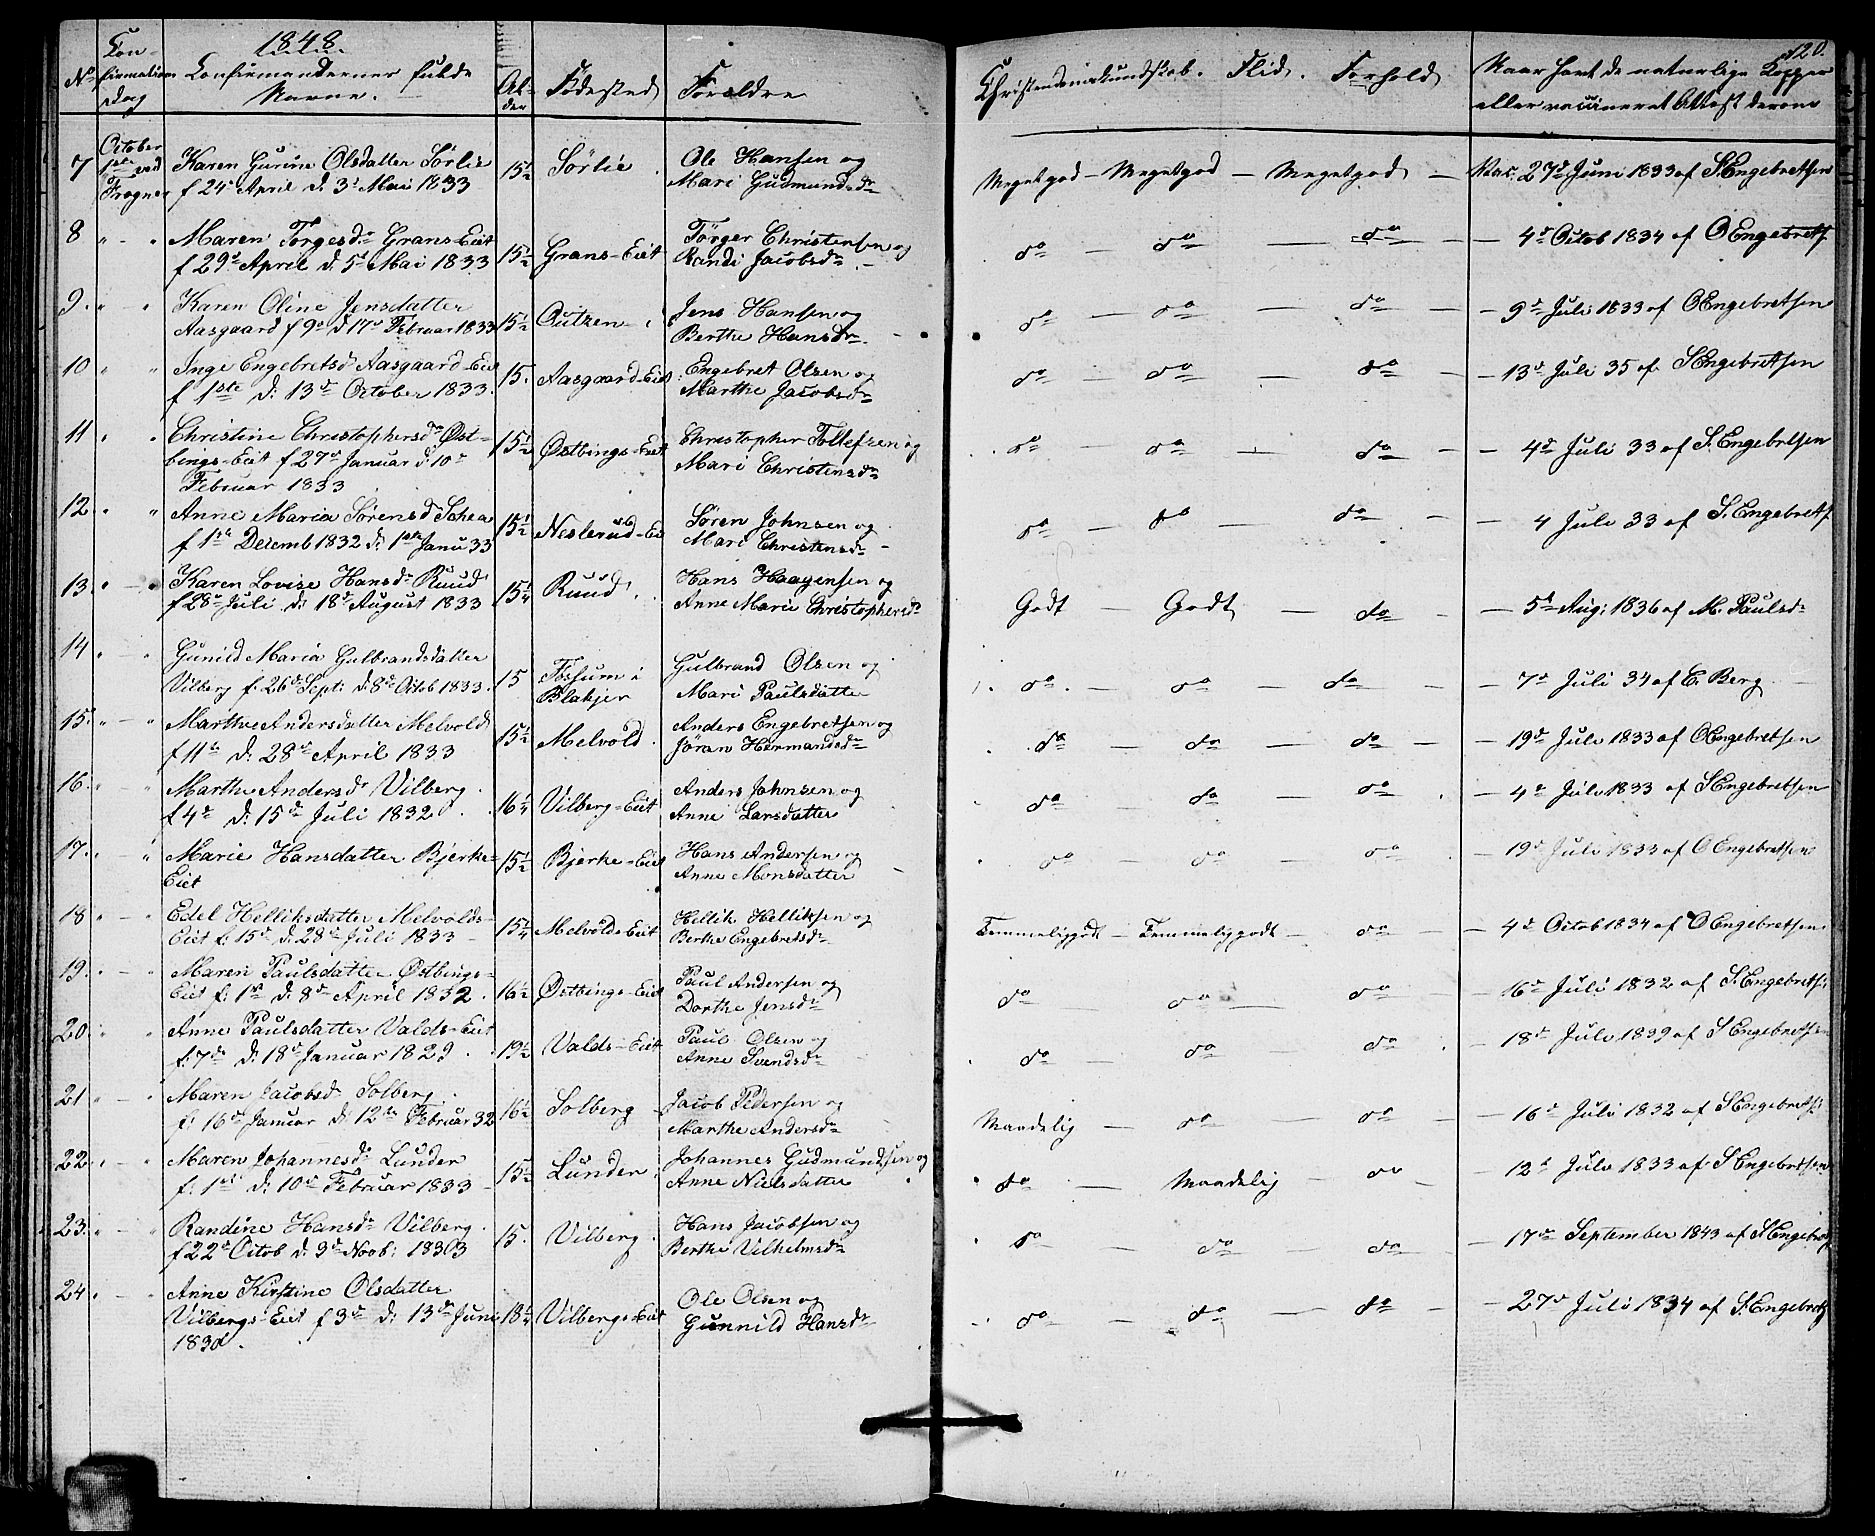 1848
120.
No
Con-
firmations
Dag
Confirmandernes fulde
Navne.
Al-
der
Fødested
Forældre
Christendomskundskab. Flid. Forhold
Naar havt de naturlige Kopper
eller vaccineret Attest derom
7 October 1ste ved Frogner Karen Gurine Olsdatter Sörlie 15½ Sörlie Ole Hansen og
f 24de April d. 3de Mai 1833 Mari Gudmundsdr
Megetgod - Megetgod - Megetgod - Vac. 27de Juni 1833 af S. Engebretsen
8 " - " Maren Torgesdr Grans-Eiet 15½ Grans-Eiet Törger Christensen og
f 29de April d. 5te Mai 1833 Randi Jacobsdr
do - do - do - 4de Octob 1834 af O Engebretsen
9. " " Karen Oline Jensdatter 15½ Outzen Jens Hansen og
Aasgaard f 9de d 17de Februar 1833 Berthe Hansdr
do - do - do - 9de Juli 1833 af O Engebretsen
10 " " Inge Engebretsd Aasgaard-Eiet 15. Aasgaard-Eiet Engebret Olsen og
f 1ste d. 13de October 1833. Marthe Jacobsdr
do - do - do - 13de Juli 35 af S Engebretsen
11 " " Christine Christophersdr Øst- 15½ Østbings-Eiet Christopher Tollefsen og
bings-Eiet f 27de Januar d. 10de Mari Christensdr
Februar 1833
do - do - do - 4de Juli 33 af S. Engebretsen
12. " " Anne Maria Sörensd Schea 15½ Neslerud-Eiet Sören Johnsen og
f 1ste Decemb 1832 d. 1ste Janu 33 Mari Christensdr
do - do - do - 4 Juli 33 af S. Engebretsen
13. " - " Karen Lovise Hansdr Ruud 15¼ Ruud Hans Haagensen og
f 28de Juli d. 18de August 1833 Anne Marie Christophersdr
Godt - Godt - do - 5te Aug: 1836 af M. Paulsdr
14 " - " Gunild Maria Gulbrandsdatter 15 Fossum i Gulbrand Olsen og
Vilberg f. 26de Sept: d. 8de Octob 1833. Blakjer Mari Paulsdatter
do - do - do - 7de Juli 34 af E. Berg
15. " - " Marthe Andersdatter Melvold 15½ Melvold Anders Engebretsen og
f 11te d. 28de April 1833 Jöran Hermandsdr
do - do - do - 19de Juli 1833 af O Engebretsen
16. " - " Marthe Andersdr Vilberg. 16¼ Vilberg-Eiet Anders Johnsen og
f 4de d. 15de Juli 1832 Anne Larsdatter
do - do - do - 4de Juli 1833 af S Engebretsen
17. " - " Marie Hansdatter Bjerke- 15½ Bjerke-Eiet Hans Andersen og
Eiet Anne Monsdatter
do - do - do - 19de Juli 1833 af O Engebretsen
18 " - " Edel Helliksdatter Melvolds- 15¼ Melvolds-Eiet Hellik Helliksen og
Eiet f. 15de d. 28de Juli 1833 Berthe Engebretsdr
Temmeliggodt - Temmeliggodt - do - 4de Octob 1834 af O Engebretsen
19. " - " Maren Paulsdatter Østbings- 16½ Østbings-Eiet Paul Andersen og
Eiet f. 1ste d. 8de April 1832. Dorthe Jensdr
do - do - do - 16de Juli 1832 af S. Engebretsen
20. " " Anne Paulsdatter Valds-Eiet 19½ Valds-Eiet Paul Olsen og
f. 7de d. 18de Januar 1829. Anne Svendsdr
do - do - do - 18de Juli 1839 af S Engebretsen
21 " - " Maren Jacobsd Solberg. 16½ Solberg Jacob Pedersen og
f. 16de Januar d. 12te Februar 32 Marthe Andersdr
Maadelig - do - do - 16de Juli 1832 af S Engebretsen
22. " - " Maren Johannesdr Lunder 15½ Lunder Johannes Gudmundsen og
f. 1ste d. 10de Februar 1833 Anne Nielsdatter
do - Maadelig - do - 12te Juli 1833 af S Engebretsen
23. " - " Randine Hansdr Vilberg. 15. Vilberg. Hans Jacobsen og
f 22de Octob d. 3de Novb: 1833 Berthe Vilhelmsdr
do - do - do - 17de September 1843 af S. Engebretsen
24. " - " Anne Kirstine Olsdatter 18¼ Vilbergs-Eiet Ole Olsen og
Vilbergs-Eiet f 3de d. 13de Juni Gunnild Hansdr
1830.
do - do - do - 27de Juli 1834 af S. Engebretsen